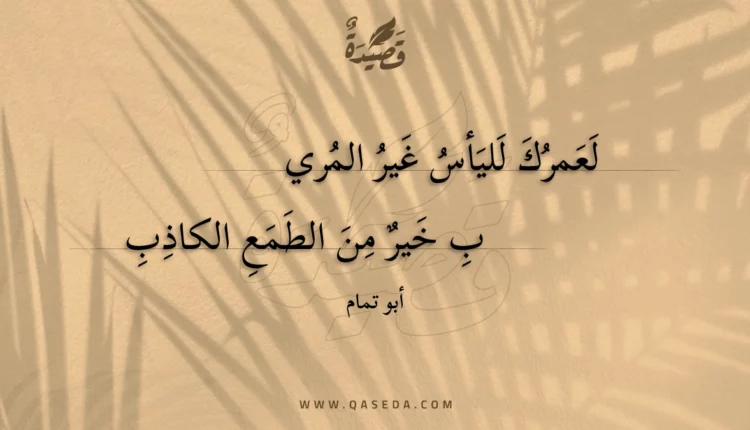 قَصِيْدَةٌ
لَعَمرُكَ لَليَأسُ غَيرُ المُري
بِ خَيرٌ مِنَ الطَمَعِ الكاذِبِ
أبو تمام
WWW.QASEDA.COM